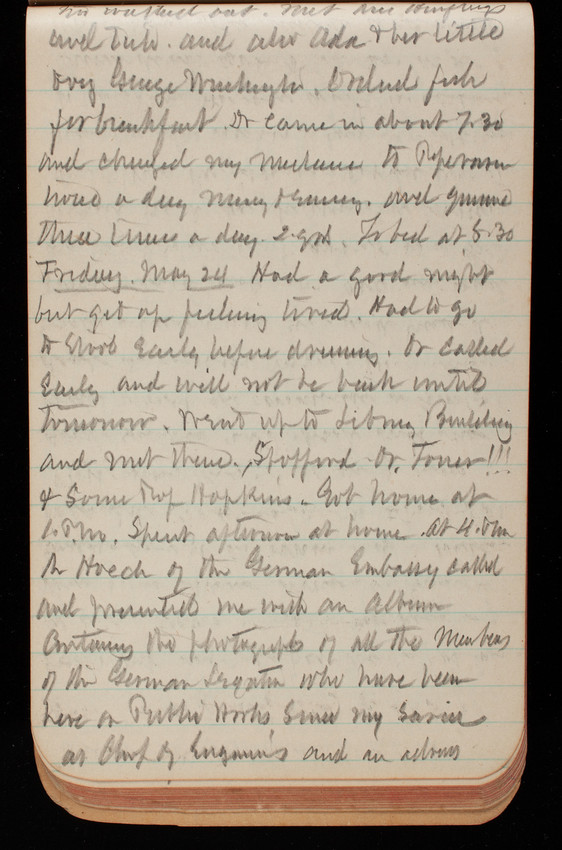 and also Ada & her little
boy George Washington. Ordered fish
for breakfast. Dr came in about 7.30
and changed my medicine to
twice a day and quinine
three times a day. 2 grs. To bed at 8.30
Friday. May 24 Had a good night
but got up feeling tired. Had to go
to Stool Early before dressing. Dr called
Early and will not be back until
tomorrow. Went up to Library Building
and met there, Spofford Dr. Toner!!!
& Some Prof Hopkins. Got home at
1. P.M. Spent afternoon at home. At 4. P.M.
Mr Hoech of the German Embassy called
and presented me with an album
Containing the photographs of all the Members
of the German Legation who have been
here on Public Works Since my Service
as Chief of Engineers and an address